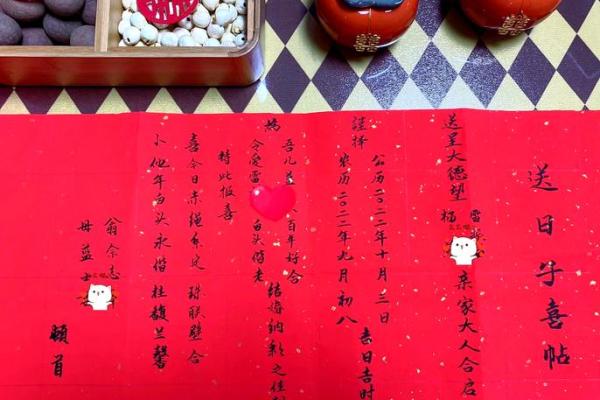 送日子喜帖
送呈大德望
福
雷
亲家大人合启
谨择
公历二〇二二年十月三日
农历二〇二二年九月初八
吉日吉时
为
吾儿
人百年好合
令爱雷
白头偕老
结婚纳彩之佳期
特此报喜
喜今日赤绳系定 珠联璧合
卜他年白头永偕 桂馥兰馨
翁余志
母蓝
顿首